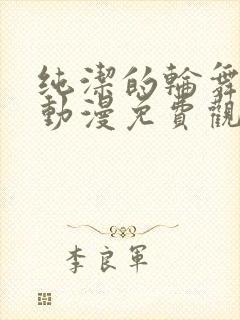 純潔的輪舞
動漫免費觀
李良軍